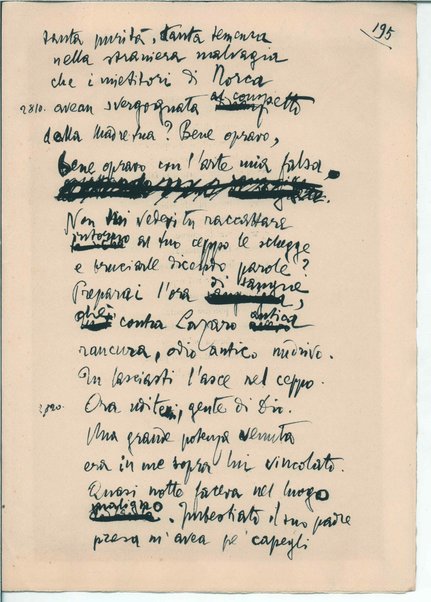 195
tanta purità, tanta temenza
nella straniera malvagia
che i mietitori di Norca
2810. avean svergognata al cospetto
della madre sua? Bene opravo,
bene opravo con l'arte mia falsa.
Non mi vedevi tu raccattare
intorno al tuo ceppo le schegge
e bruciarle dicendo parole?
Preparai l'ora di sangue,
ché contra Lazaro antica
rancura, odio antico nudrivo.
Tu lasciasti l'asce nel ceppo.
2820. Ora uditemi, gente di Dio.
Una grande potenza venuta
era in me sopra lui vincolato.
Quasi notte faceva nel luogo
maligno. Imbestiato il suo padre
presa m'avea pe' capegli